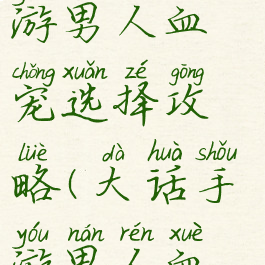 游男人血
chǒng xuǎn zé gōng
宠选择攻
lüè dà huà shǒu
略(大话手
yóu nán rén xuè
游男人血